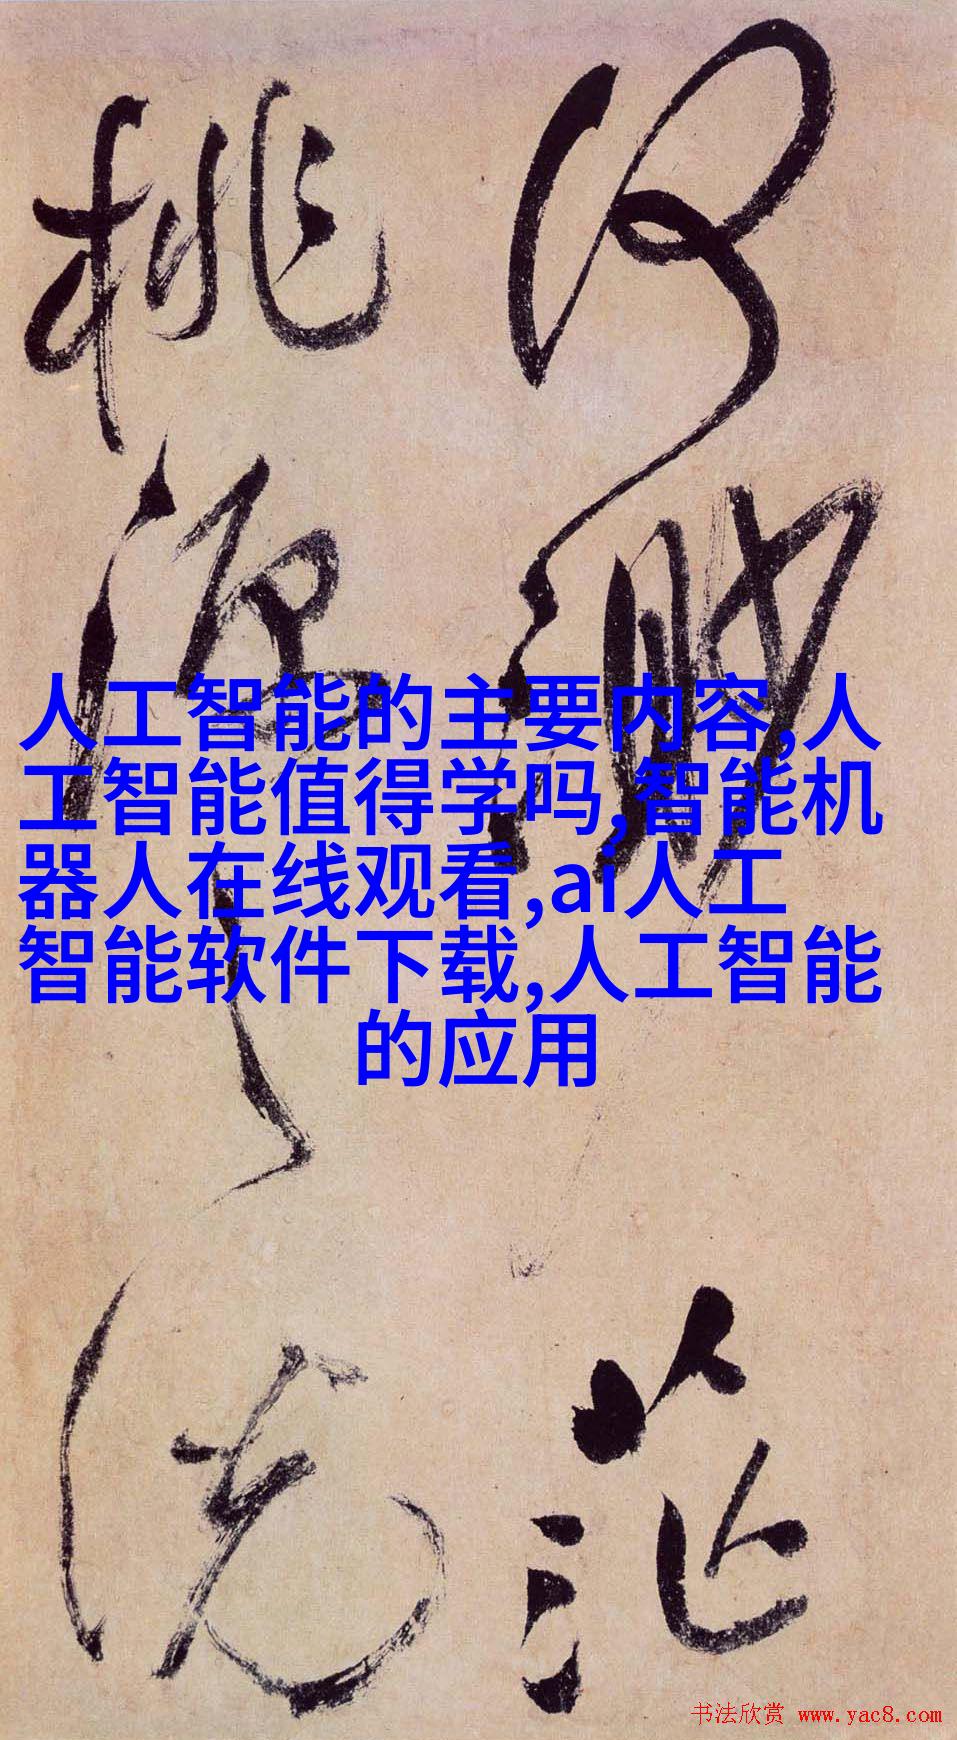 何渺茫
桃源之说
人工智能的主要内容,人
工智能值得学吗,智能机
器人在线观看,ai人工
智能软件下载,人工智能
的应用
书法欣赏 www.yac8.com